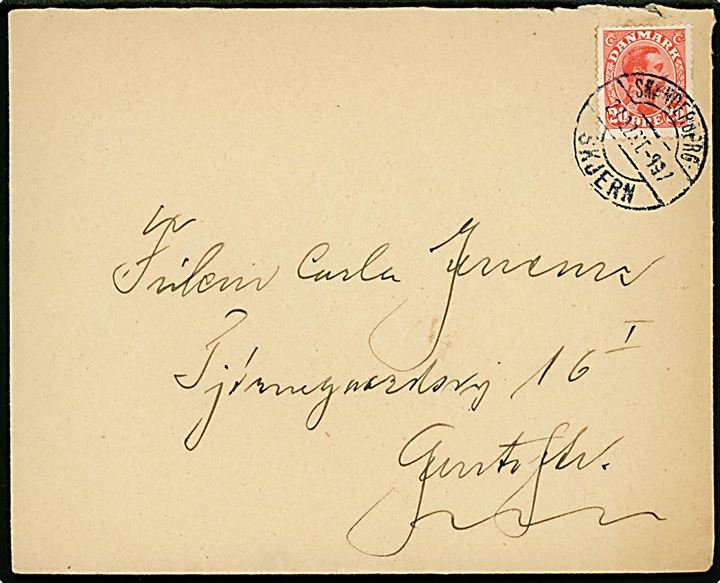 DANMARK
20 ØRE
SKANDERBORG.
SKJERN
Frøken Carla Jensen
Tjørnegaardsvej 16 I
Gentofte.